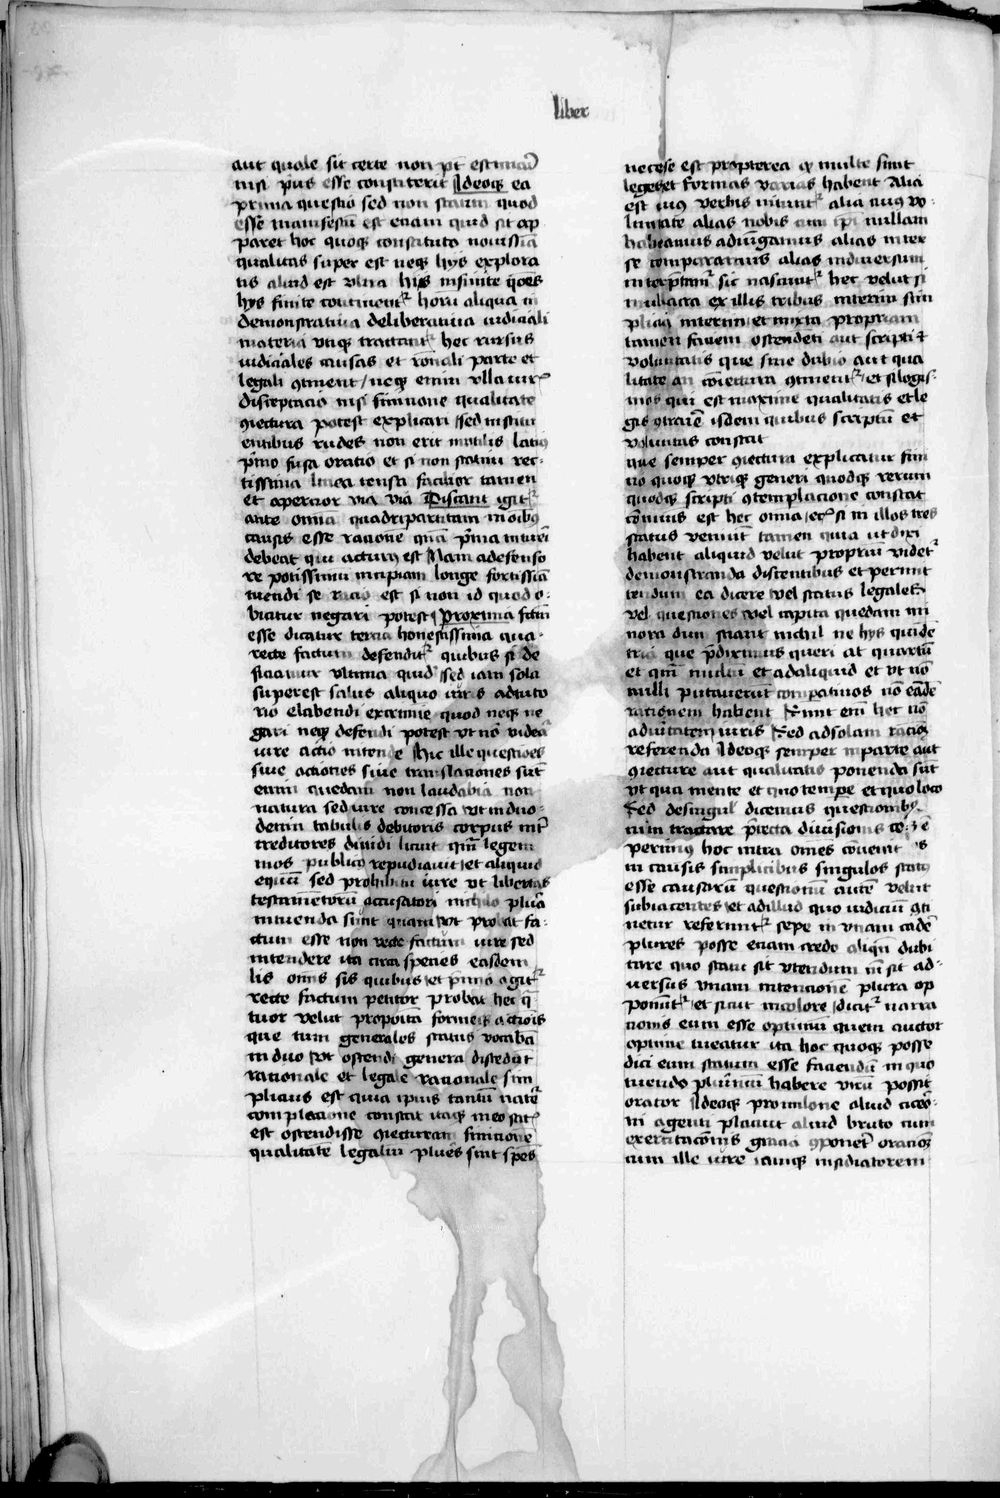 liber
aut quale sit certe non pt̄ estimari
nisi pus esse constiterit Ideoqꝫ ea
prima questio sed non statim quod
esse manifestū est etiam quid sit ap
paret hoc quoqꝫ constituto nouissia
qualitas super est neqꝫ hys explora
tis aliud est vltra his infinite qōes
hys finite continent᷑ horū aliqua in
demonstratiua deliberatiua iudiciali
materia vtiqꝫ tractant᷑ hec rursus
iudiciales causas et rōnali parte et
legali ꝯtinent / neqꝫ enim vlla iur᷑
disceptacio nisi finitione qualitate
ꝯiectura potest explicari sed institu
entibus rudes non erit inutilis latiꝰ
pͥmo fusa oratio et si non statim rec-
tissima linea tensa facilior tamen
et apercior via via Discant igit᷑
ante omīa quadripartitam in oībꝰ
causis esse rationē quā pͥma intueri
debeat qui acturꝰ est Nam a defenso
re potissimū incipiam longe fortissia
tuendi se racio est si non id quod o-
bicitur negari potest Proxima factū
esse dicatur tercia honestissima qua-
recte factum defendit᷑ quibus si de
ficiamur vltima quid sed iam sola
superest salus aliquo iuris adiuto
rio elabendi ex crimie quod neqꝫ ne
gari neqꝫ defendi potest vt nō videat
iure actio intende Hic ille questioēs
siue actiones siue translationes sūt
enim quedam non laudabīa non
natura sed iure concessa vt in duo-
denī tabulis debitoris corpus intͥ
creditores diuidi licuit quā legem
mos publicꝰ repudiauit et aliquid
equū sed prohibitū iure vt libertas
testamētorū accusatori nichilo plura
intuenda sunt quam vt probet fa-
ctum esse non recte factum iure sed
intendere ita circa species easdem
lis omīs sis quibus et pͥmo agit᷑
recte factum petitor probat hec q̄
tuor velut propoīta forme qꝫ actiōis
que tum generales status vocabā
in duo vt ostendi genera discedūt
rationale et legale rationale sim
plicius est quia ipius tantū natͥe
complacione constat itaqꝫ in eo sit᷑
est ostendisse ꝯiecturam finitione
qualitate legaliū plures sint spēs
necese est propterea qꝫ multe sunt
leges et formas varias habent Alia
est cuiꝰ verbis nitunt᷑ alia cuiꝰ vo-
luntate alias nobis cum ipī nullam
habeamus adiungamus alias inter
se comparamus alias in diuersum
interptam᷑ sic nascunt᷑ hec velut si
mulacra ex illis tribus interim sim
plicia interim et mixta propriam
tamen faciem ostendēti aut scripti ⁊
voluntatis que sine dubio aut qua
litate an cōiectura ꝯtinent᷑ / et silogis-
mos qui est maxime qualitatis et le
gis ꝯtrarie isdem quibus scriptū et
voluntas constat
que semper ꝯiectura explicatur fini
tio quoqꝫ vtriqꝫ generi quodqꝫ rerum
quodqꝫ scripti ꝯtemplacione constat
cōmunis est hec omīa ecͥ si in illos tres
status veniūt tamen quia ut dixi
habent aliquid velut propriū videt᷑
demonstranda discentibus et permit
tendum ea dicere vel status legales
vel questiones vel capita quedam mi
nora dum sciant nichil ne hys quidē
tria que pͥdiximus queri at quartū
et qm̄ multū et ad aliquid et vt nō
nulli putauerūt comparatiuos nō eādē
rationem habent Sunt em̄ hec nō
ad iuritatem iuris Sed ad solam racioꝫ
referenda Ideoqꝫ semper in parte aut
ꝯiecture aut qualitatis ponenda sūt
vt qua mente et quo tempe et quo loco
Sed de singul dicemus questionibꝰ
cum tractare pͥfecta diuisionis ceꝫ ē
perimꝰ hoc intra om̄es cōuenit
in causis simplicibus singulos status
esse causarū questionū autē velut
subiacentes et ad illud quo iudiciū ꝯti
netur referunt᷑ sepe in vnam cadē
plures posse etiam credo aliqn̄ dubi
tare quo statu sit vtendum nī sit ad-
versus vnam intencionē plura op
ponūt᷑ et sicut in colore dicit᷑ narra
tionis eum esse optimū quem auctor
optime tueatur ita hoc quoqꝫ posse
dici eum statum esse faciendū in quo
tuendo plurimū habere virū possit
orator Ideoqꝫ pro milone aliud cicero-
ni agenti placuit aliud bruto cum
exercitacōnis gracia ꝯponet᷑ oracioꝫ
cum ille iure iamqꝫ insidiatorem